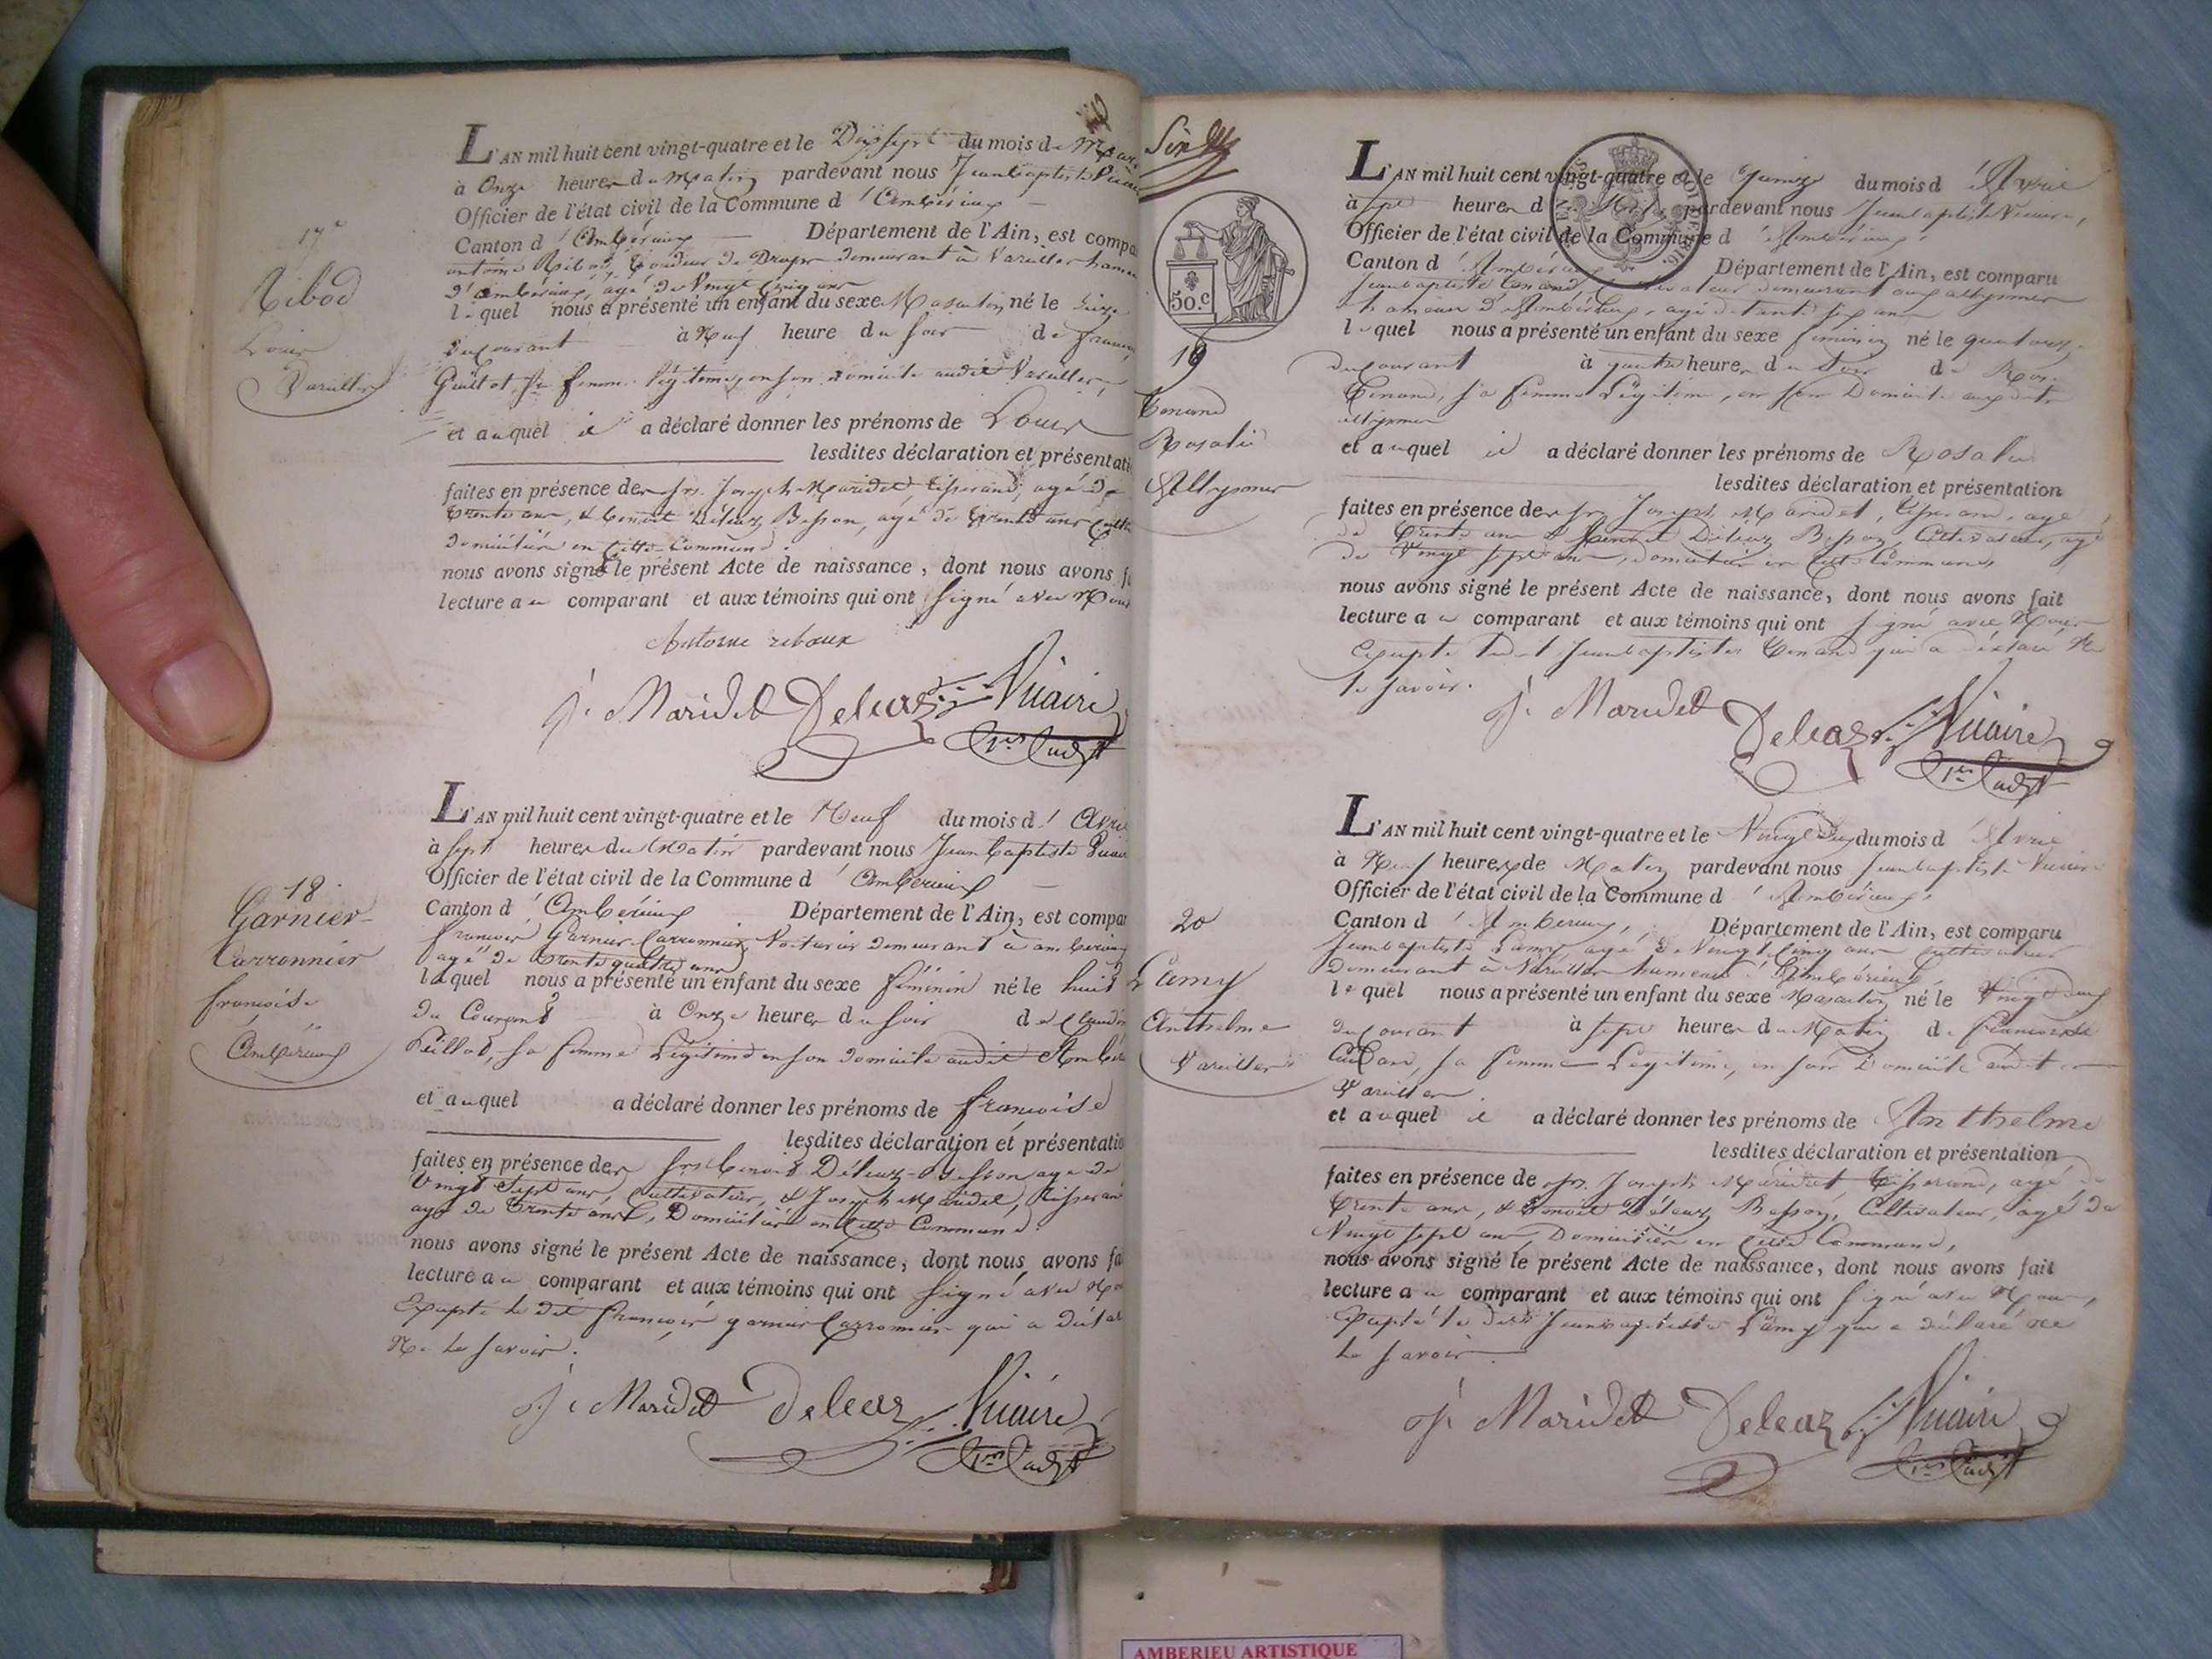 17e
Ribod
Louis
Vareilles
L'AN mil huit cent vingt-quatre et le Dix sept du mois de Mars
à Onze heures du Matin pardevant nous Jean baptiste
Officier de l'état civil de la Commune d'Ambérieux
Canton d'Ambérieux Département de l'Ain, est compa
antoine Ribod, Tondeur de Draps demeurant à Vareilles hameau
d'ambérieux, agé de Vingt Cinq ans
lequel nous a présenté un enfant du sexe Masculin né le Seize
du Courant à Neuf heure du Soir de
sa femme légitime, en son domicile audit Vareilles,
et auquel il a déclaré donner les prénoms de Louis
lesdites déclaration et présentati
faites en présence des srs. Joseph Maridet, tisserand, agé de
trente ans, & Benoit Déleaz Besson, agé de
domiciliés en cette Commune.
nous avons signé le présent Acte de naissance, dont nous avons f
lecture au comparant et aux témoins qui ont signé avec Nous
Antoine riboux
j. Maridet Deleaz Vicaire
18
Garnier
Carronnier
françoise
Ambérieux
L'AN mil huit cent vingt-quatre et le Neuf du mois d'Avri
à sept heures du Matin pardevant nous Jean baptiste
Officier de l'état civil de la Commune d'Ambérieux
Canton d'Ambérieux Département de l'Ain, est compa
françois Garnier Carronnier, Voiturier demeurant à ambérieux
agé de trente quatre ans
lequel nous a présenté un enfant du sexe féminin né le huit
du Courant à Onze heures du Soir de
sa femme légitime en son domicile audit
et auquel a déclaré donner les prénoms de françoise
lesdites déclaration et présentatio
faites en présence des srs. Benoit Déleaz-Besson agé de
Vingt Sept ans, Cultivateur, & Joseph Maridet, tisseran
agé de trente ans, Domiciliés en cette Commune.
nous avons signé le présent Acte de naissance, dont nous avons fa
lecture au comparant et aux témoins qui ont signé avec
Excepté le dit françois garnier Carronnier qui a
Ne le savoir.
j. Maridet Deleaz Vicaire
50.c
19
Tenand
Rosalie
Allymes
L'AN mil huit cent vingt-quatre et le Quinze du mois d'Avril
à sept heures d pardevant nous Jean baptiste
Officier de l'état civil de la Commune d'Ambérieux
Canton d'Ambérieux Département de l'Ain, est comparu
Jean baptiste Tenand, Cultivateur demeurant aux allymes
hameau d'Ambérieux, agé de trente six ans
lequel nous a présenté un enfant du sexe féminin né le quatorze
du courant à quatre heures du Soir de
Tenand, sa femme Légitime, en son Domicile
allymes
et auquel il a déclaré donner les prénoms de Rosalie
lesdites déclaration et présentation
faites en présence des srs. Joseph Maridet, tisserand, agé
de trente ans & Benoit Déleaz Besson, Cultivateur, agé
de Vingt sept ans, domiciliés en cette Commune
nous avons signé le présent Acte de naissance, dont nous avons fait
lecture au comparant et aux témoins qui ont signé avec Nous
Excepté Jean baptiste Tenand qui a déclaré Ne
le savoir.
j. Maridet Deleaz Vicaire
20
Lamy
Anthelme
Vareilles
L'AN mil huit cent vingt-quatre et le du mois d'Avril
à Neuf heures de Matin pardevant nous Jean baptiste
Officier de l'état civil de la Commune d'Ambérieux
Canton d'Ambérieux, Département de l'Ain, est comparu
Jean baptiste Lamy, agé de Vingt Cinq ans Cultivateur
demeurant à Vareilles hameau d'Ambérieux
lequel nous a présenté un enfant du sexe Masculin né le
du Courant à sept heures du Matin de francoise
sa femme Légitime, en son Domicile audit
Vareilles
et auquel il a déclaré donner les prénoms de Anthelme
lesdites déclaration et présentation
faites en présence de srs. Joseph Maridet tisserand, agé de
trente ans, & Benoit Déleaz Besson, Cultivateur, agé de
Vingt sept ans, Domiciliés en cette Commune,
nous avons signé le présent Acte de naissance, dont nous avons fait
lecture au comparant et aux témoins qui ont signé avec Nous,
Excepté le dit Jean baptiste Lamy qui a déclaré ne
le savoir.
j. Maridet Deleaz Vicaire
AMBERIEU ARTISTIQUE